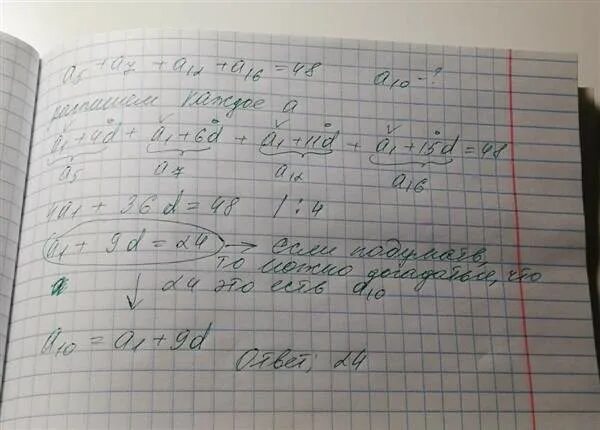 a₅ + a₇ + a₁₂ + a₁₆ = 48 a₁₀ - ?
распишем каждое a
a₁ + 4d + a₁ + 6d + a₁ + 11d + a₁ + 15d = 48
a₅ a₇ a₁₂ a₁₆
4a₁ + 36d = 48 | : 4
a₁ + 9d = 24 → если подумать,
то можно догадаться, что
24 это есть a₁₀
a₁₀ = a₁ + 9d
Ответ: 24